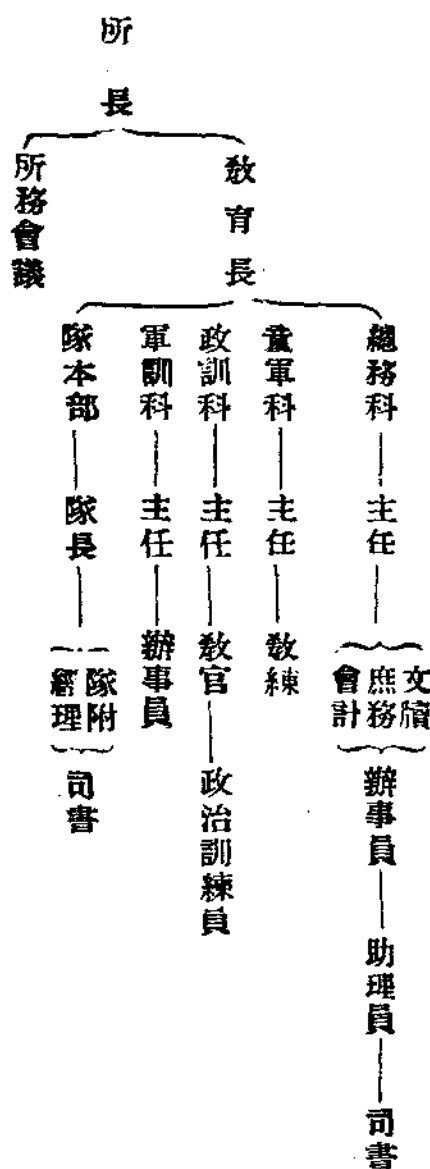 所長
教育長
所務會議
總務科
主任
文牘
庶務
會計
辦事員
助理員
司書
童軍科
主任
教練
政訓科
主任
教官
政治訓練員
軍訓科
主任
辦事員
隊本部
隊長
隊附
經理
司書